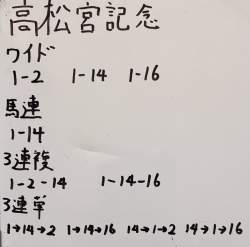 高松宮記念
ワイド
1-2 1-14 1-16
馬連
1-14
3連複
1-2-14 1-14-16
3連単
1→14→2 1→14→16 14→1→2 14→1→16